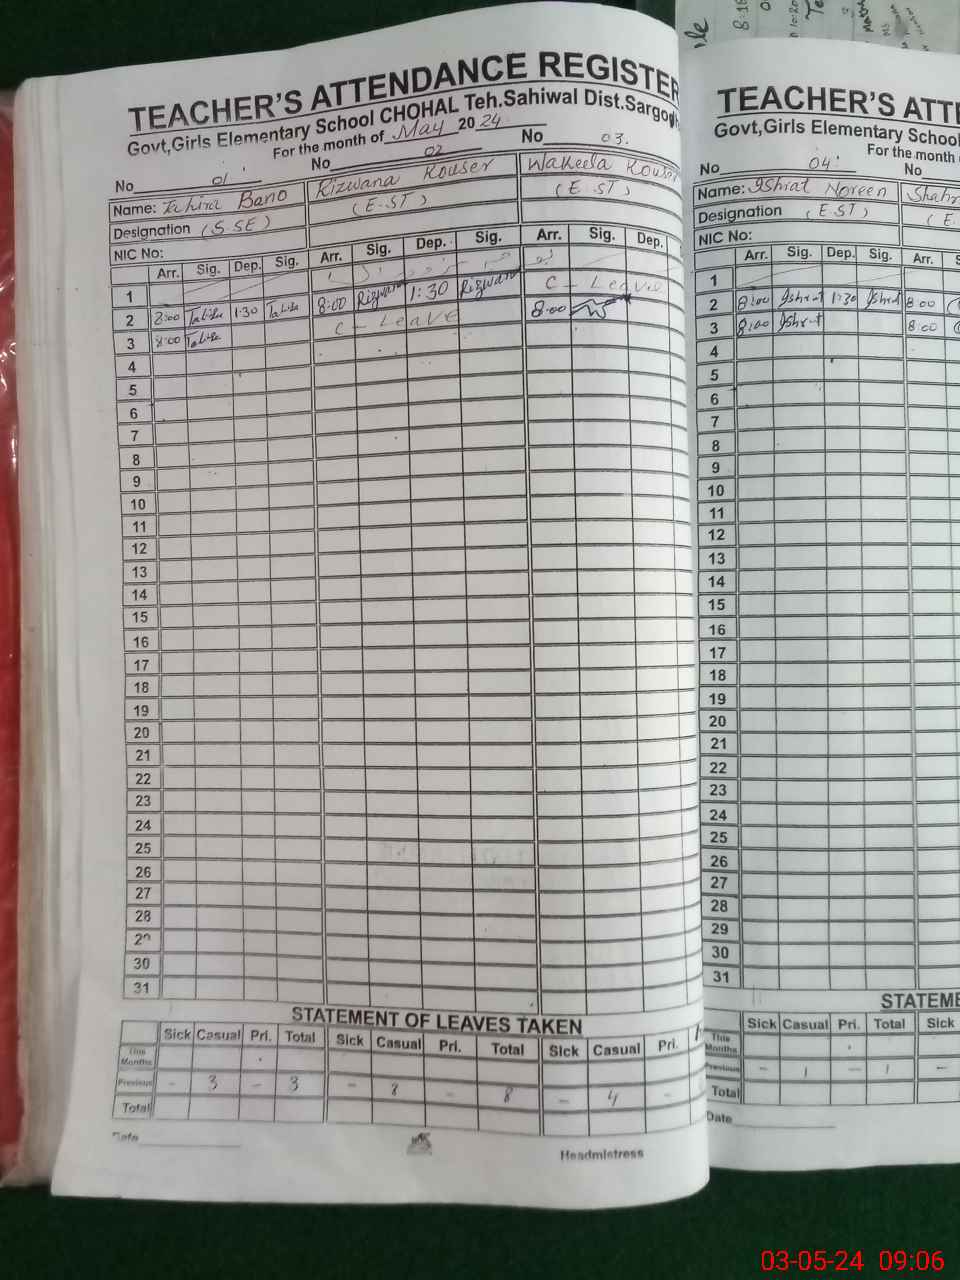 TEACHER'S ATTENDANCE REGISTER
Govt,Girls Elementary School CHOHAL Teh.Sahiwal Dist.Sargo
For the month of May 2024
No 01 No 02 No 03.
Name: Tahira Bano Rizwana Kouser Wakeela Kouser
Designation (S.SE) (E.ST) (E.ST)
NIC No:
Arr. Sig. Dep. Sig. Arr. Sig. Dep. Sig. Arr. Sig. Dep.
1
2 8:00 1:30 8:00 Rizwana 1:30 Rizwana C - Leave
3 8:00 C - Leave 8:00
4
5
6
7
8
9
10
11
12
13
14
15
16
17
18
19
20
21
22
23
24
25
26
27
28
29
30
31
STATEMENT OF LEAVES TAKEN
Sick Casual Pri. Total Sick Casual Pri. Total Sick Casual Pri.
This Months
Previous - 3 - 3 - 8 - 8 - 4 -
Total
Date
Headmistress
TEACHER'S ATTE
Govt,Girls Elementary School
For the month
No 04 No
Name: Ishrat Noreen Shahn
Designation (E.ST) (E.
NIC No:
Arr. Sig. Dep. Sig. Arr. S
1
2 8:00 Ishrat 1:30 Ishrat 8:00
3 8:00 Ishrat 8:00
4
5
6
7
8
9
10
11
12
13
14
15
16
17
18
19
20
21
22
23
24
25
26
27
28
29
30
31
STATEME
Sick Casual Pri. Total Sick
This Months
Previous - 1 - 1 -
Total
Date
03-05-24 09:06